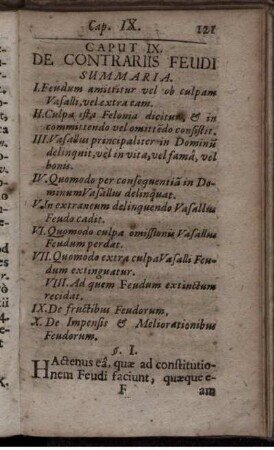 Cap. IX. 121
CAPUT IX.
DE CONTRARIIS FEUDI
SUMMARIA.
I. Feudum amittitur vel ob culpam
Vasalli, vel extra eam.
II. Culpa ista Felonia dicitur, & in
committendo vel omittẽdo consistit.
III. Vasallus principaliter in Dominũ
delinquit, vel in vita, vel famâ, vel
bonis.
IV. Quomodo per consequentiã in Do-
minum Vasallus delinquat.
V. In extraneum delinquendo Vasallus
Feudo cadit.
VI. Quomodo culpa omissionis Vasallus
Feudum perdat.
VII. Quomodo extra culpã Vasalli Feu-
dum extinguatur.
VIII. Ad quem Feudum extinctum
recidat.
IX. De fructibus Feudorum.
X. De Impensis & Meliorationibus
Feudorum.
§. I.
HActenus eâ, quæ ad constitutio-
nem Feudi faciunt, quæque e-
F am